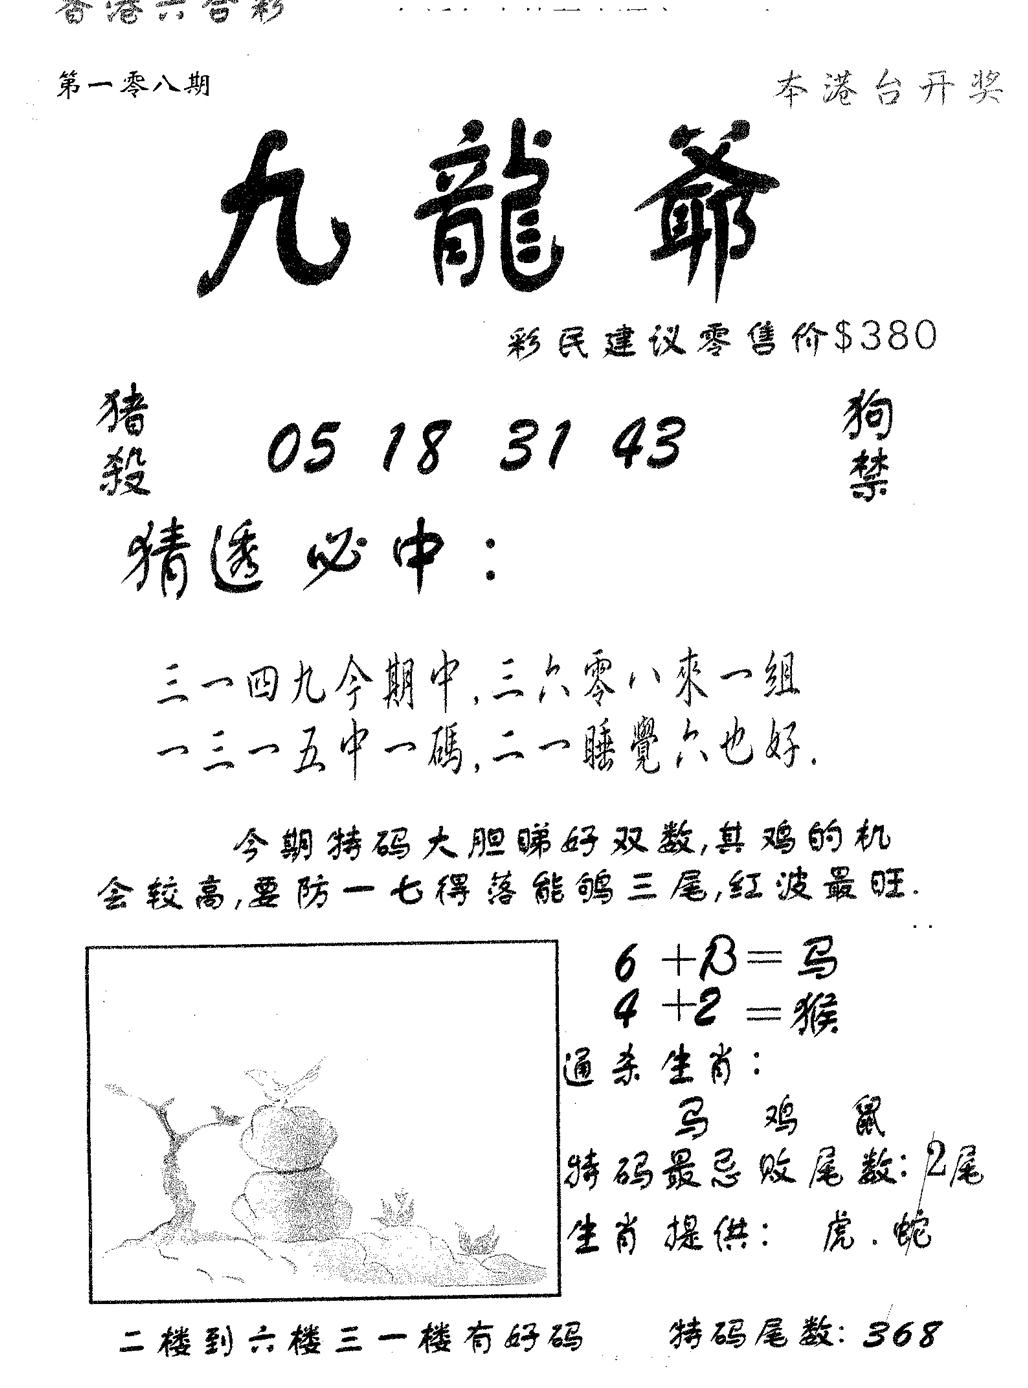 香港六合彩
第一零八期
本港台开奖
九龍爺
彩民建议零售价$380
猪殺
05 18 31 43
狗禁
猜透必中：
三一四九今期中,三六零八來一組
一三一五中一碼,二一睡覺六也好.
今期特码大胆睇好双数,其鸡的机
会较高,要防一七得落能鸲三尾,红波最旺.
6+13=马
4+2=猴
通杀生肖：
马 鸡 鼠
特码最忌败尾数:2尾
生肖提供：虎.蛇
二楼到六楼三一楼有好码
特码尾数:368